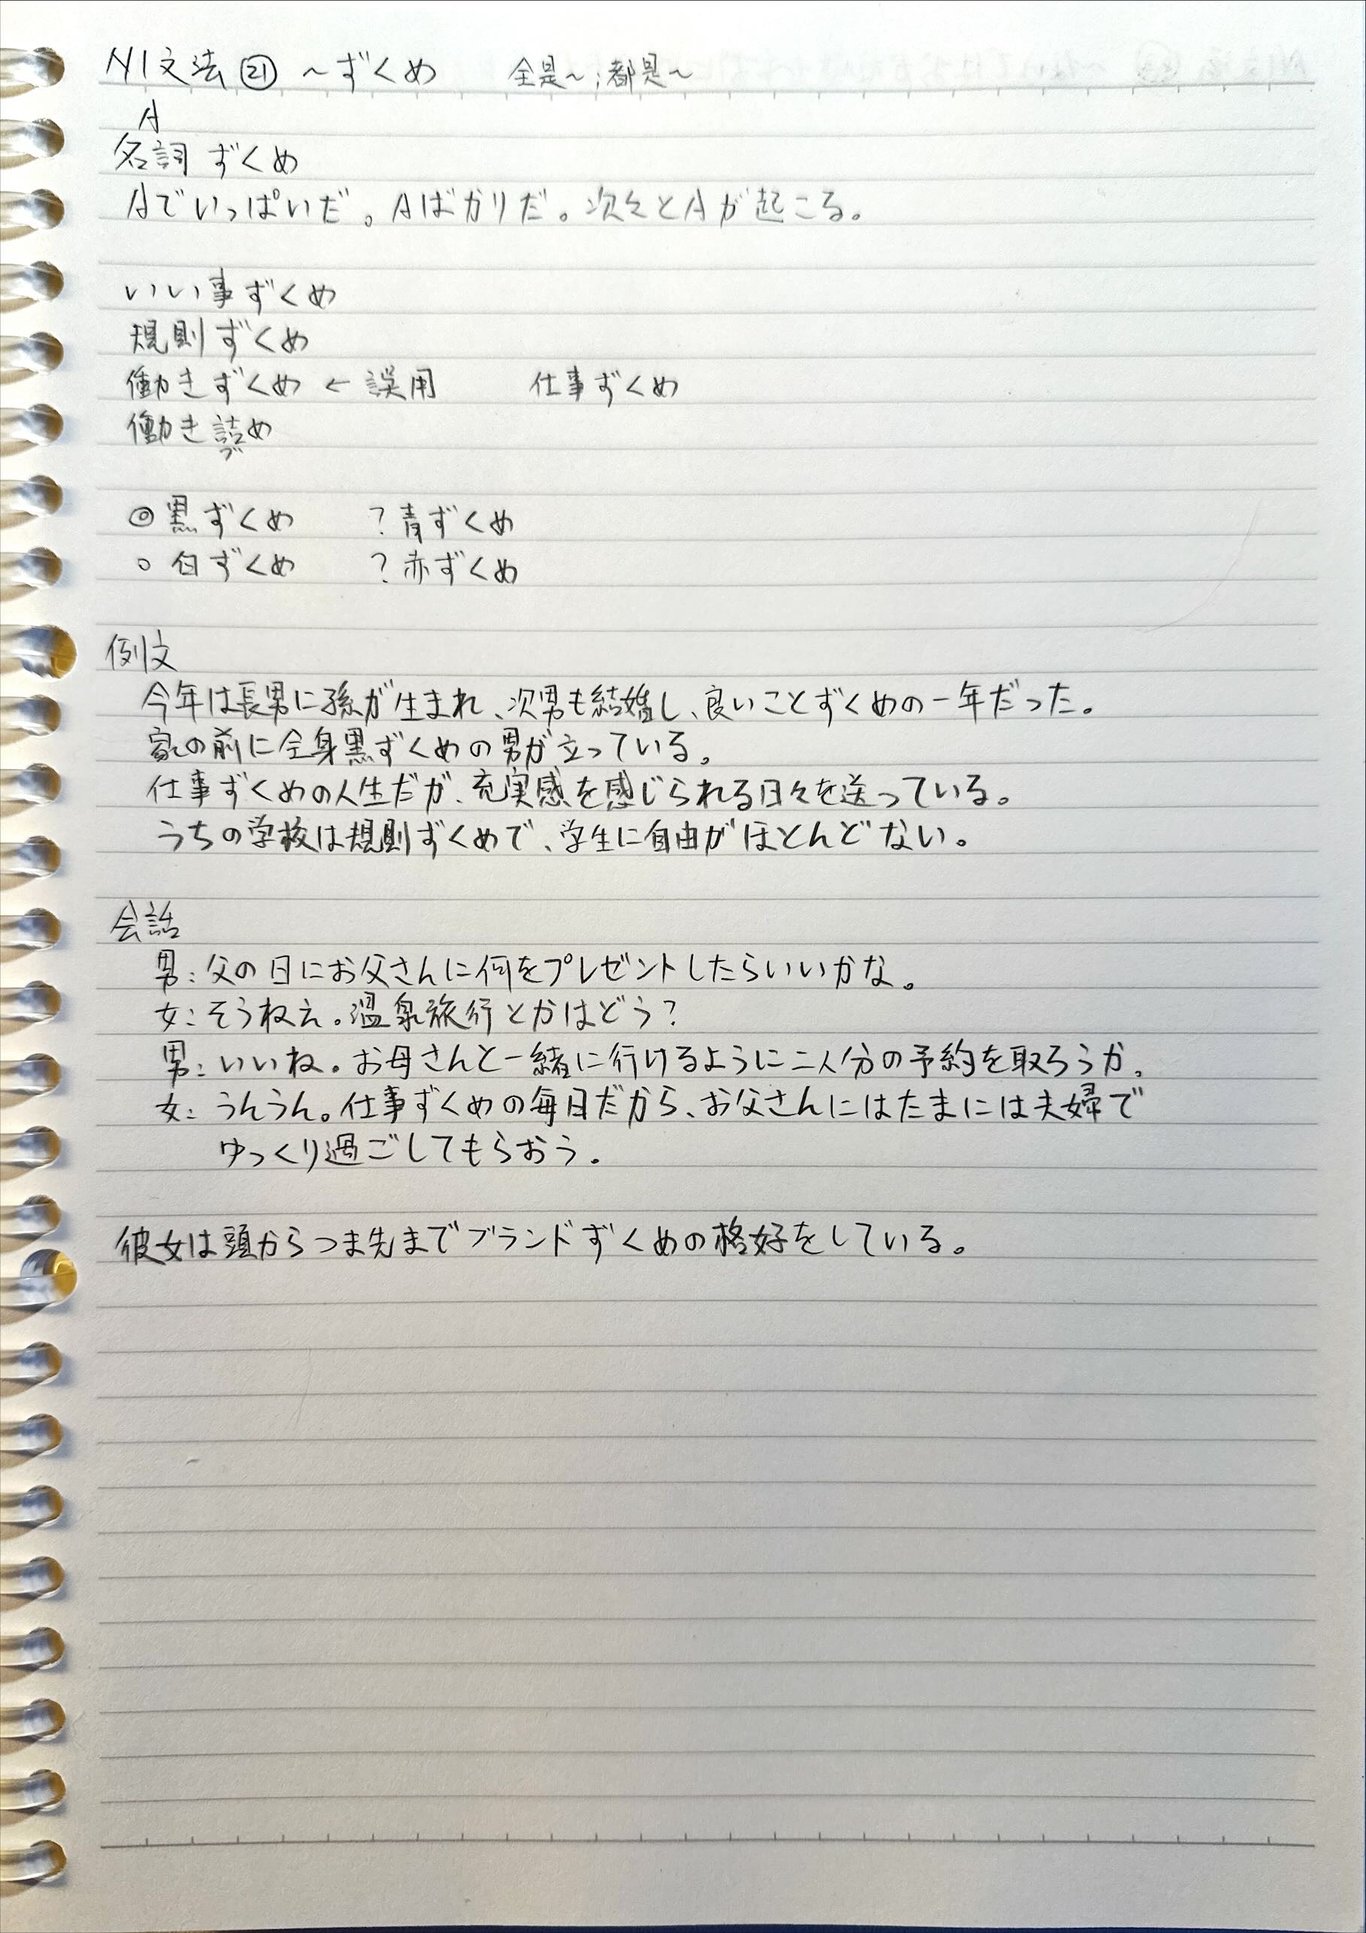 N1文法㉑ ～ずくめ 全是～；都是～
A
名詞 ずくめ
Aでいっぱいだ。Aばかりだ。次々とAが起こる。
いい事ずくめ
規則ずくめ
働きずくめ ← 誤用 仕事ずくめ
働き詰め
づ
◎黒ずくめ ？青ずくめ
○白ずくめ ？赤ずくめ
例文
今年は長男に孫が生まれ、次男も結婚し、良いことずくめの一年だった。
家の前に全身黒ずくめの男が立っている。
仕事ずくめの人生だが、充実感を感じられる日々を送っている。
うちの学校は規則ずくめで、学生に自由がほとんどない。
会話
男：父の日にお父さんに何をプレゼントしたらいいかな。
女：そうねえ。温泉旅行とかはどう？
男：いいね。お母さんと一緒に行けるように二人分の予約を取ろうか。
女：うんうん。仕事ずくめの毎日だから、お父さんにはたまには夫婦で
ゆっくり過ごしてもらおう。
彼女は頭からつま先までブランドずくめの格好をしている。